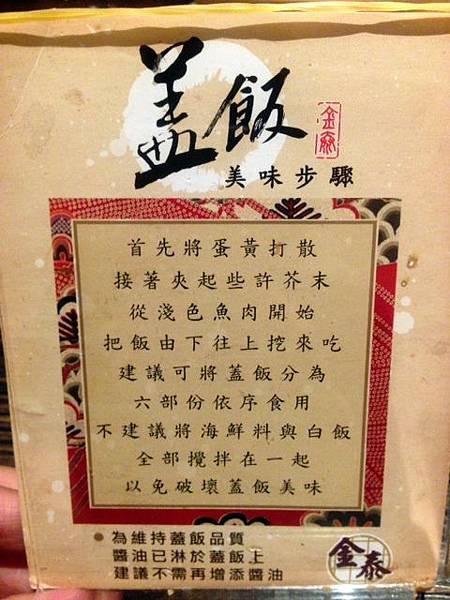 蓋飯
金泰
美味步驟
首先將蛋黃打散
接著夾起些許芥末
從淺色魚肉開始
把飯由下往上挖來吃
建議可將蓋飯分為
六部份依序食用
不建議將海鮮料與白飯
全部攪拌在一起
以免破壞蓋飯美味
●為維持蓋飯品質
醬油已淋於蓋飯上
建議不需再增添醬油
金泰